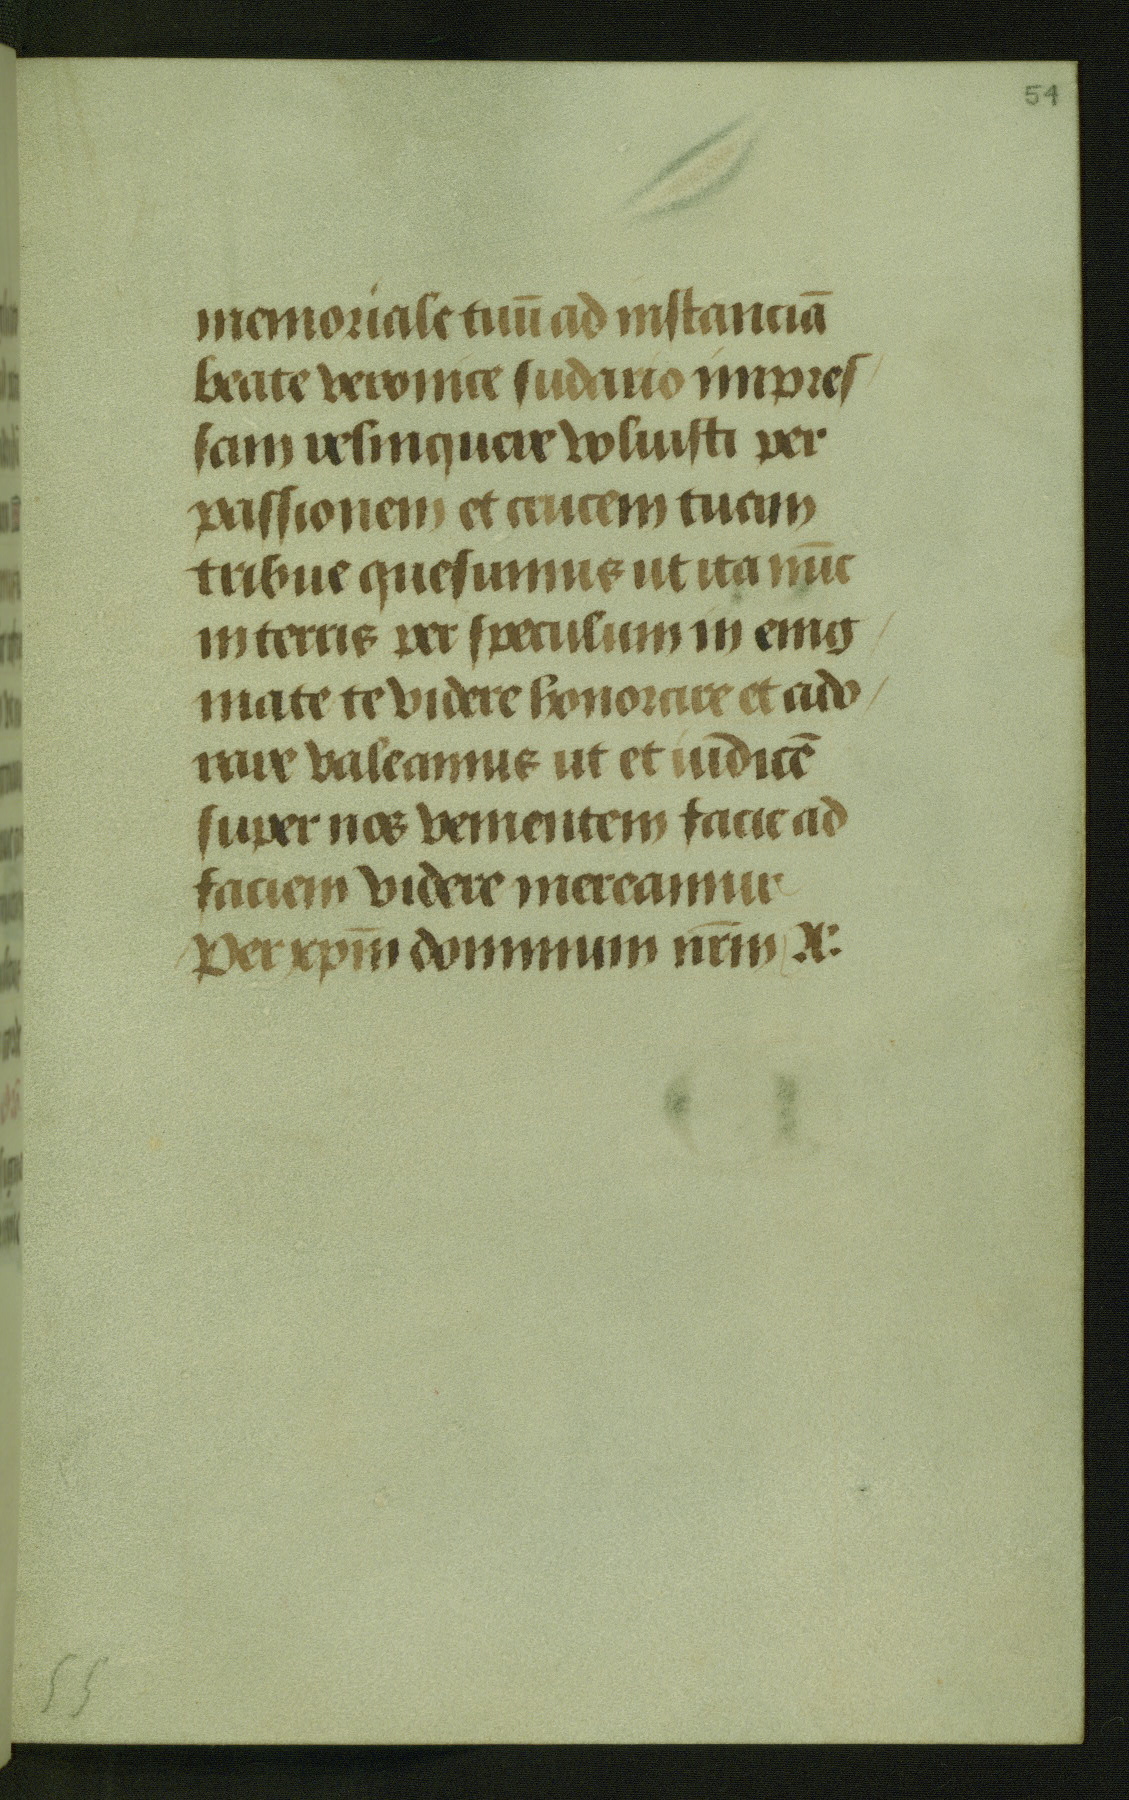 54
memoriale tuū ad instanciā
beate veronice sudario impres
sam relinquere voluisti per
passionem et crucem tuam
tribue quesumus ut ita nūc
in terris per speculum in enig
mate te videre honorare et ado
rare valeamus ut et iudicē
super nos venientem facie ad
faciem videre mereamur
Per xpm̄ dominum nr̄m A:
55